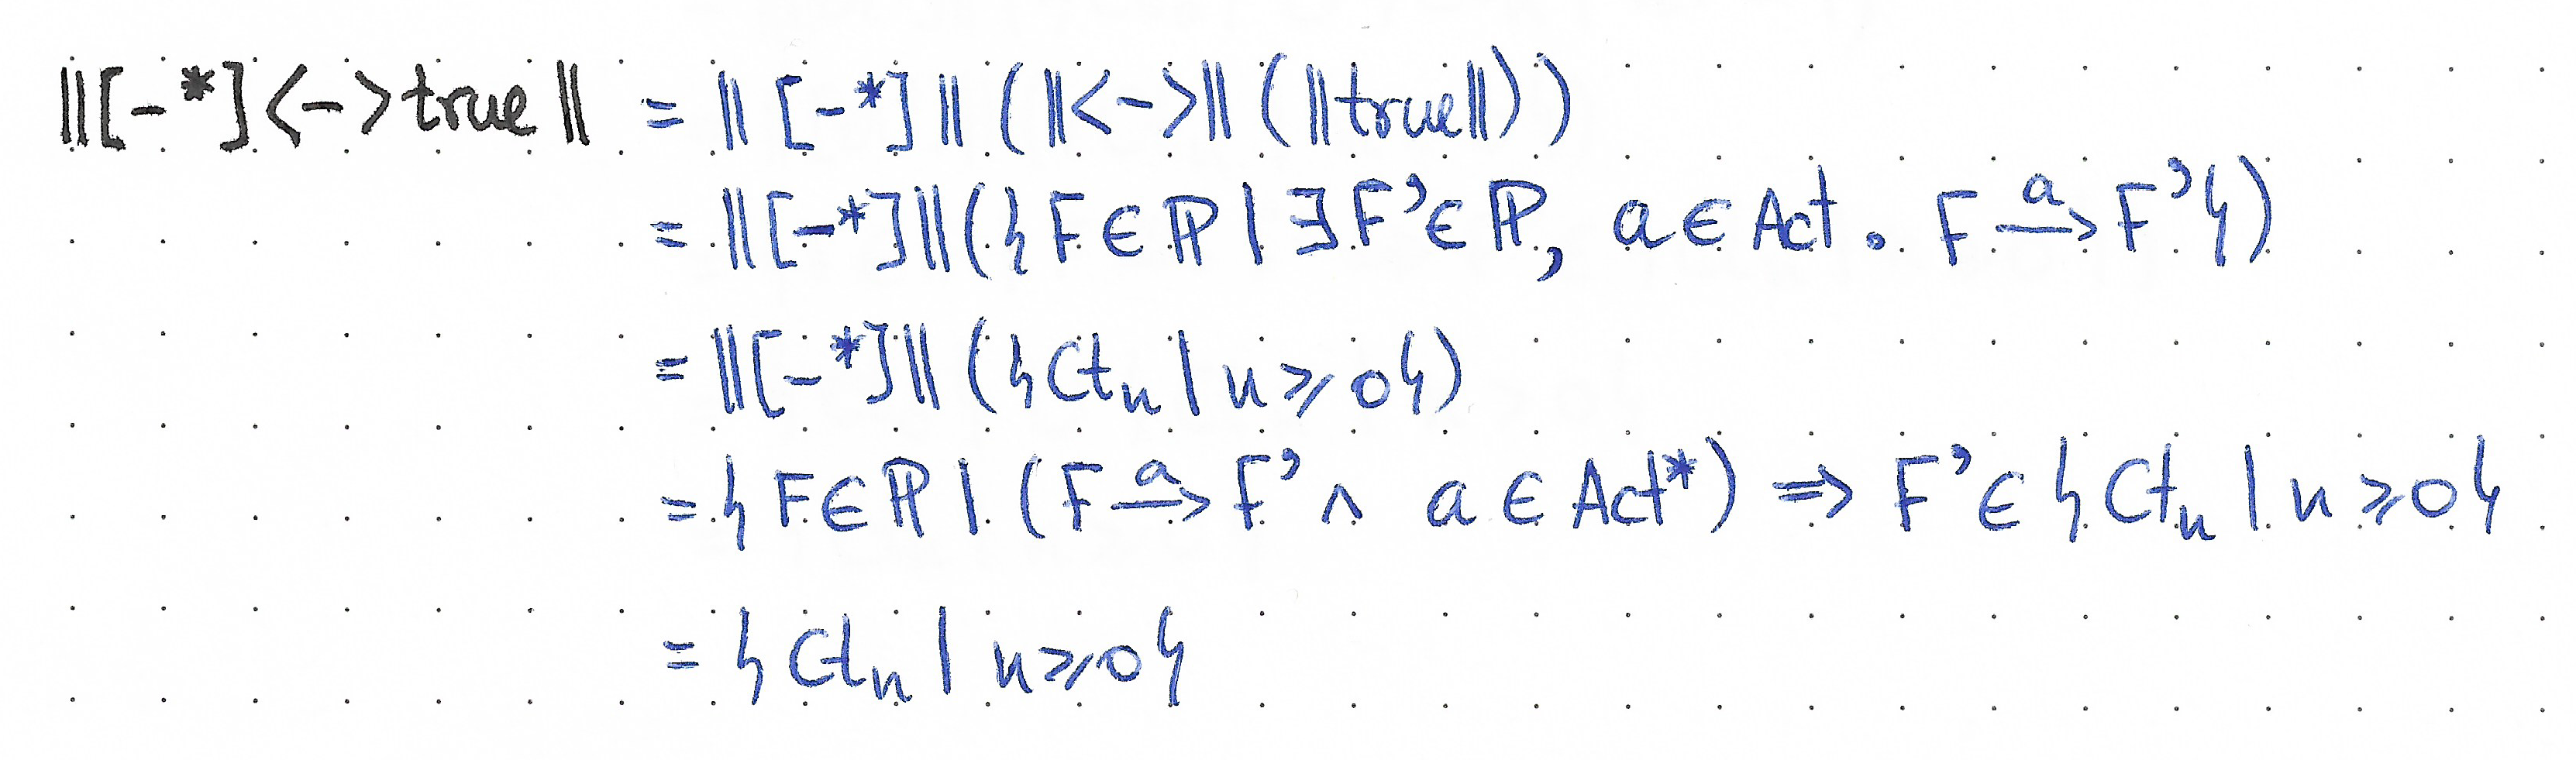 ‖[-*]<->true‖ = ‖[-*]‖(‖<->‖(‖true‖))
= ‖[-*]‖({F ∈ ℙ | ∃F' ∈ ℙ, a ∈ Act . F -a-> F'})
= ‖[-*]‖({Ctₙ | n ⩾ 0})
= {F ∈ ℙ | (F -a-> F' ∧ a ∈ Act*) ⇒ F' ∈ {Ctₙ | n ⩾ 0}
= {Ctₙ | n ⩾ 0}